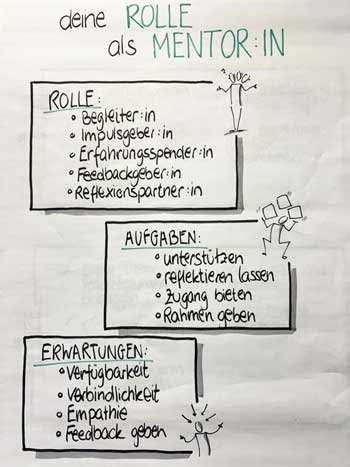 deine ROLLE
als MENTOR:IN
ROLLE:
• Begleiter:in
• Impulsgeber:in
• Erfahrungsspender:in
• Feedbackgeber:in
• Reflexionspartner:in
AUFGABEN:
• unterstützen
• reflektieren lassen
• Zugang bieten
• Rahmen geben
ERWARTUNGEN:
• Verfügbarkeit
• Verbindlichkeit
• Empathie
• Feedback geben